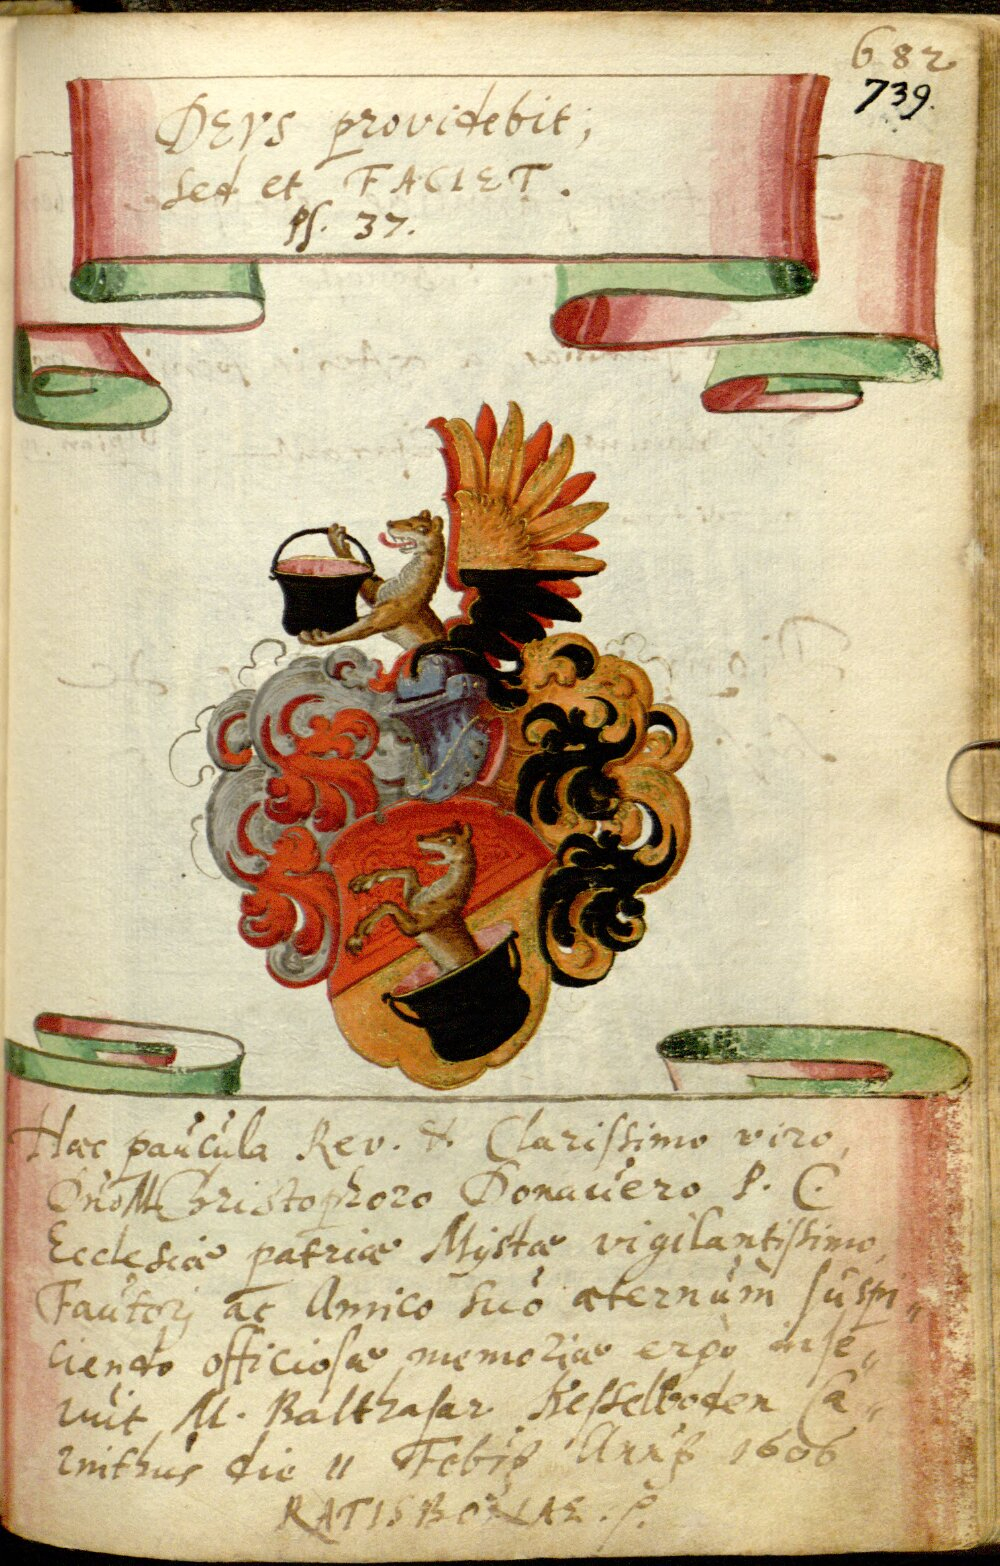 682
739.
DEVS providebit;
sed et FACIET.
Ps. 37.
Hæc paucula Rev. & Clarissimo viro,
Dno M. Christophoro Donauero P. C.
Ecclesiæ patriæ Mystæ vigilantissimo,
Fautorj ac Amico suo æternum suspi„
ciendo officiosæ memoriæ ergò inse„
ruit M. Balthasar Kesselboden Ca„
rinthus die 11 Febr. Anni 1606
RATISBONAE.